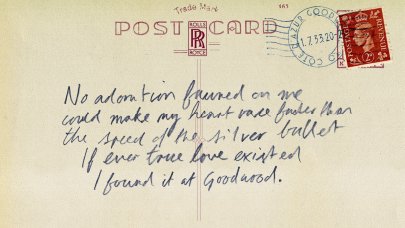 Trade Mark
POST CARD
ROLLS
RR
ROYCE
No adoration fawned on me
could make my heart race faster than
the speed of the silver bullet
If ever true love existed
I found it at Goodwood.